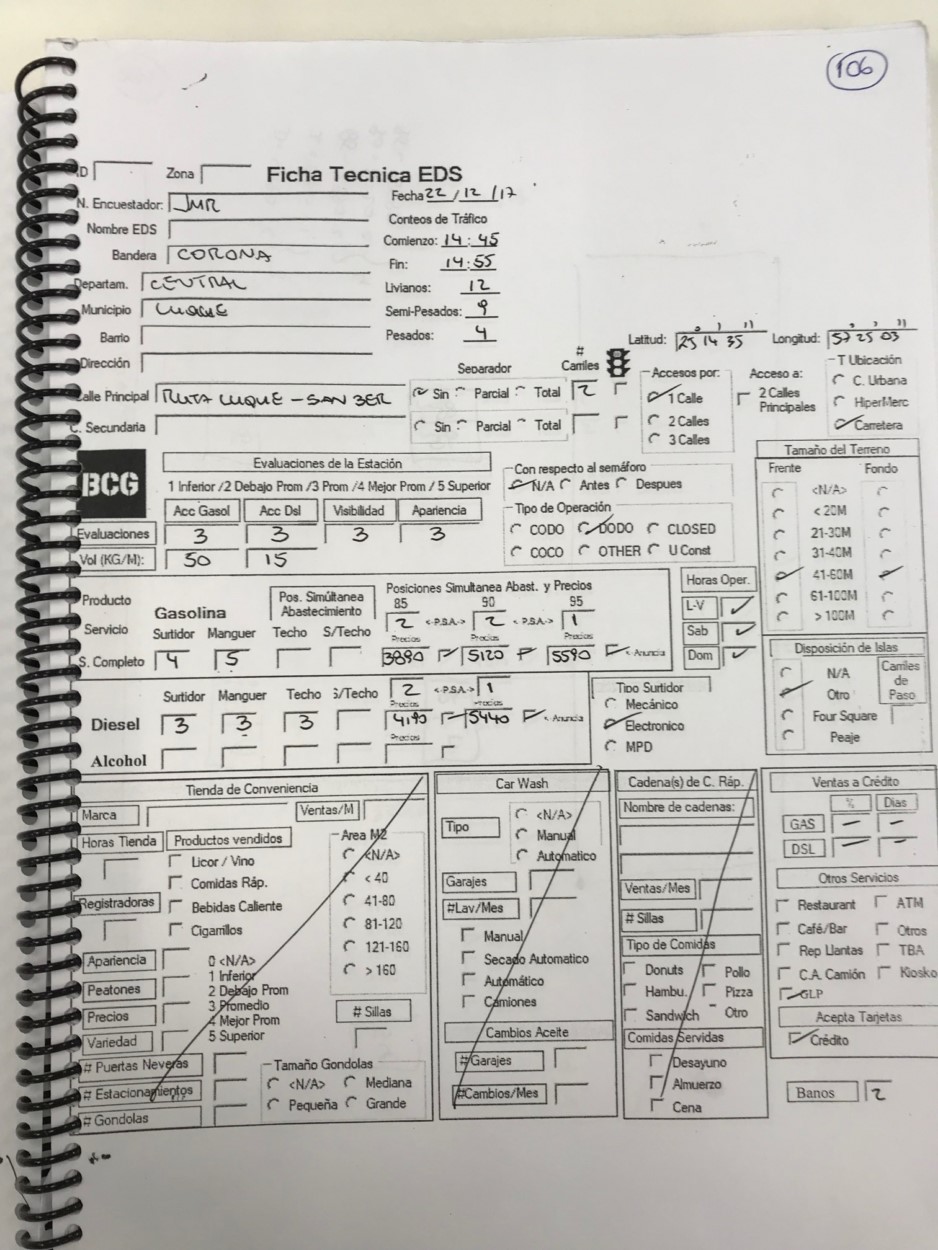 106
ID Zona Ficha Tecnica EDS
N. Encuestador: JMR Fecha 22/12/17
Nombre EDS Conteos de Tráfico
Bandera CORONA Comienzo: 14:45
Fin: 14:55
Departam. CENTRAL Livianos: 12
Municipio LUQUE Semi-Pesados: 9
Barrio Pesados: 4
Latitud: 25 14 35 Longitud: 57 25 03
Dirección Separador # Carriles Accesos por: Acceso a: T Ubicación
Calle Principal RUTA LUQUE - SAN BER Sin Parcial Total 2 1 Calle 2 Calles Principales C. Urbana
HiperMerc
C. Secundaria Sin Parcial Total 2 Calles Carretera
3 Calles
BCG
Evaluaciones de la Estación
1 Inferior /2 Debajo Prom /3 Prom /4 Mejor Prom / 5 Superior
Acc Gasol Acc Dsl Visibilidad Apariencia
Evaluaciones 3 3 3 3
Vol (KG/M): 50 15
Con respecto al semáforo
N/A Antes Despues
Tipo de Operación
CODO DODO CLOSED
COCO OTHER U Const
Tamaño del Terreno
Frente Fondo
<N/A>
< 20M
21-30M
31-40M
41-60M
61-100M
> 100M
Producto Gasolina Pos. Simúltanea Abastecimiento Posiciones Simultanea Abast. y Precios
85 90 95
Servicio Surtidor Manguer Techo S/Techo 2 <-P.S.A.-> 2 <-P.S.A.-> 1
Precios Precios Precios
S. Completo 4 5 3890 5120 5590 <- Anuncia
Horas Oper.
L-V
Sab
Dom
Disposición de Islas
N/A Carriles de Paso
Otro
Four Square
Peaje
Surtidor Manguer Techo S/Techo 2 <-P.S.A.-> 1
Precios Precios
Diesel 3 3 3 4190 5440 <- Anuncia
Precios
Alcohol
Tipo Surtidor
Mecánico
Electronico
MPD
Tienda de Conveniencia
Marca Ventas/M
Horas Tienda Productos vendidos Area M2
Licor / Vino <N/A>
Comidas Ráp. < 40
Registradoras Bebidas Caliente 41-80
Cigarrillos 81-120
121-160
> 160
Apariencia 0 <N/A>
1 Inferior
Peatones 2 Debajo Prom
Precios 3 Promedio # Sillas
4 Mejor Prom
Variedad 5 Superior
# Puertas Neveras Tamaño Gondolas
# Estacionamientos <N/A> Mediana
# Gondolas Pequeña Grande
Car Wash
Tipo <N/A>
Manual
Automatico
Garajes
#Lav/Mes
Manual
Secado Automatico
Automático
Camiones
Cambios Aceite
#Garajes
#Cambios/Mes
Cadena(s) de C. Ráp.
Nombre de cadenas:
Ventas/Mes
# Sillas
Tipo de Comidas
Donuts Pollo
Hambu. Pizza
Sandwich Otro
Comidas Servidas
Desayuno
Almuerzo
Cena
Ventas a Crédito
% Dias
GAS — —
DSL — —
Otros Servicios
Restaurant ATM
Café/Bar Otros
Rep Llantas TBA
C.A. Camión Kiosko
GLP
Acepta Tarjetas
Crédito
Banos 2